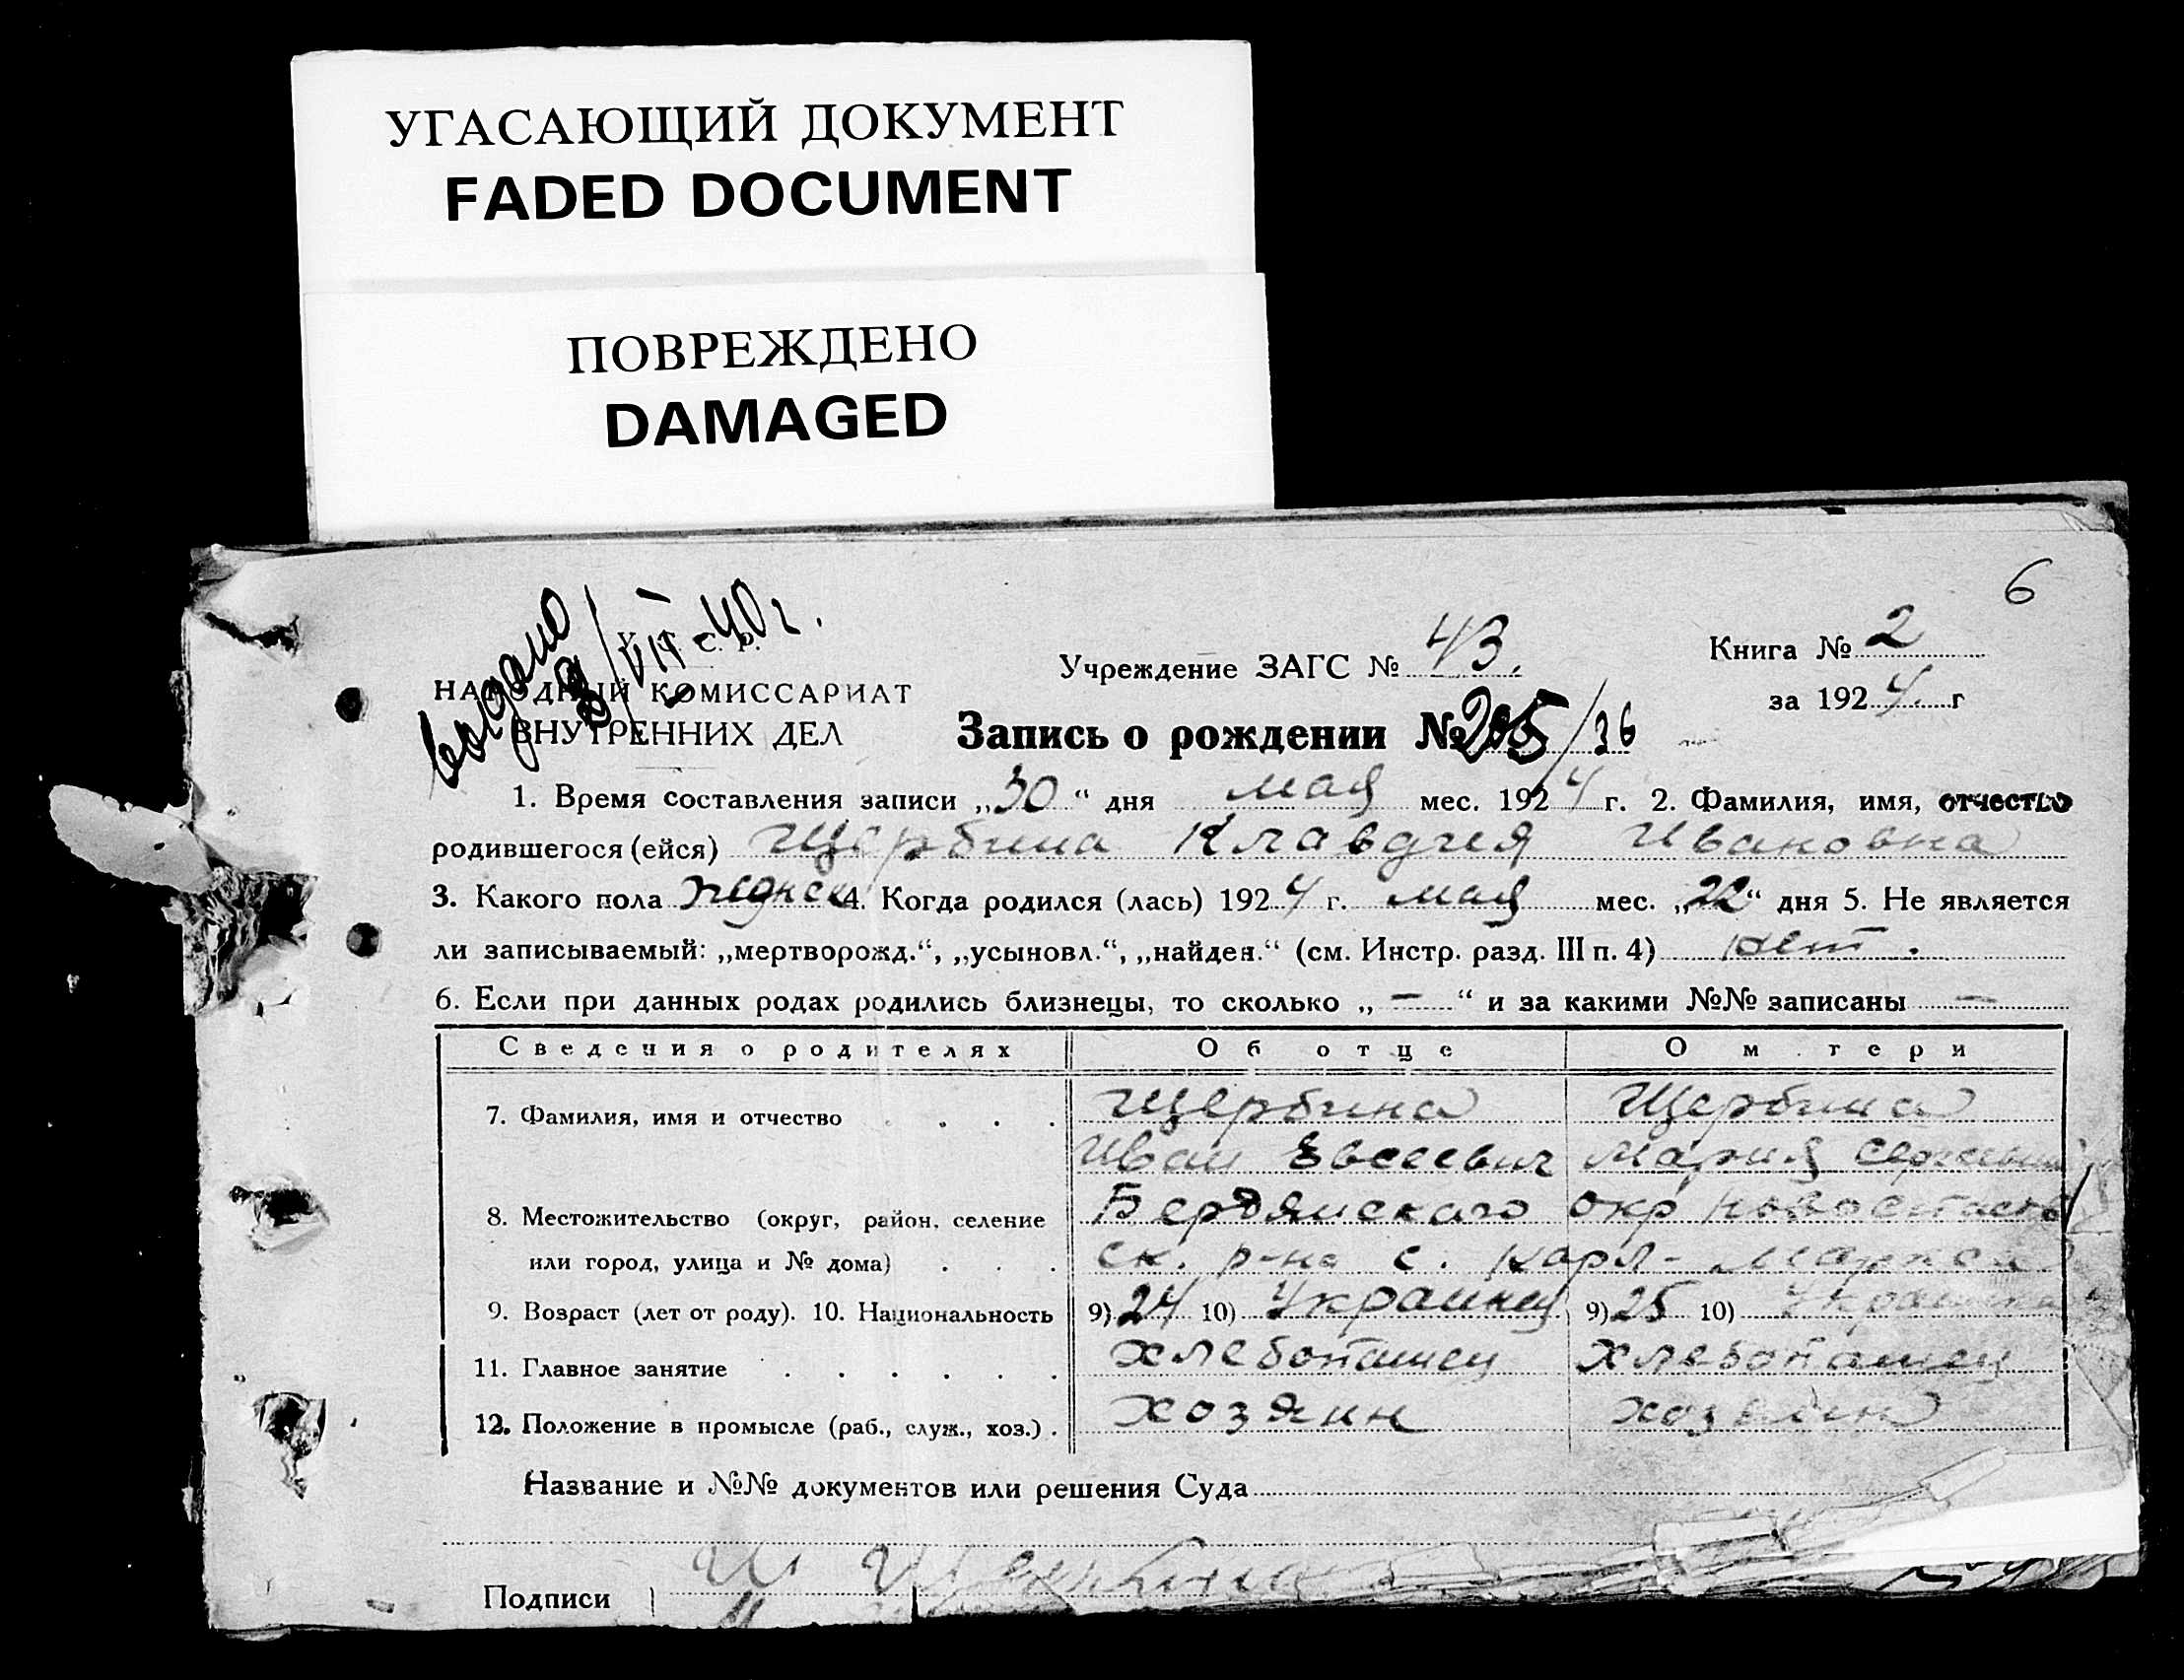 УГАСАЮЩИЙ ДОКУМЕНТ
FADED DOCUMENT
ПОВРЕЖДЕНО
DAMAGED
6
выдано
VII 40 г.
НАРОДНЫЙ КОМИССАРИАТ
ВНУТРЕННИХ ДЕЛ
Учреждение ЗАГС № 43.
Книга № 2
за 1924 г
Запись о рождении № 205/36
1. Время составления записи „30“ дня мая мес. 1924 г. 2. Фамилия, имя, отчество
родившегося (ейся) Щербина Клавдия Ивановна
3. Какого пола женск 4. Когда родился (лась) 1924 г. мая мес. „22“ дня 5. Не является
ли записываемый: „мертворожд.“, „усыновл.“, „найден.“ (см. Инстр. разд. III п. 4) нет.
6. Если при данных родах родились близнецы, то сколько „—“ и за какими №№ записаны —
Сведения о родителях Об отце О м тери
7. Фамилия, имя и отчество . . . . Щербина Щербина
Иван Евсеевич Мария
8. Местожительство (округ, район, селение Бердянского окр Новоспасов
или город, улица и № дома) . . . ск. р-на с. Карл-Маркса
9. Возраст (лет от роду). 10. Национальность 9) 24 10) Украинец 9) 25 10) Украинка
11. Главное занятие . . . . . . хлебопашец хлебопашец
12. Положение в промысле (раб., служ., хоз.) . хозяин хозяин
Название и №№ документов или решения Суда
Подписи И Щербина